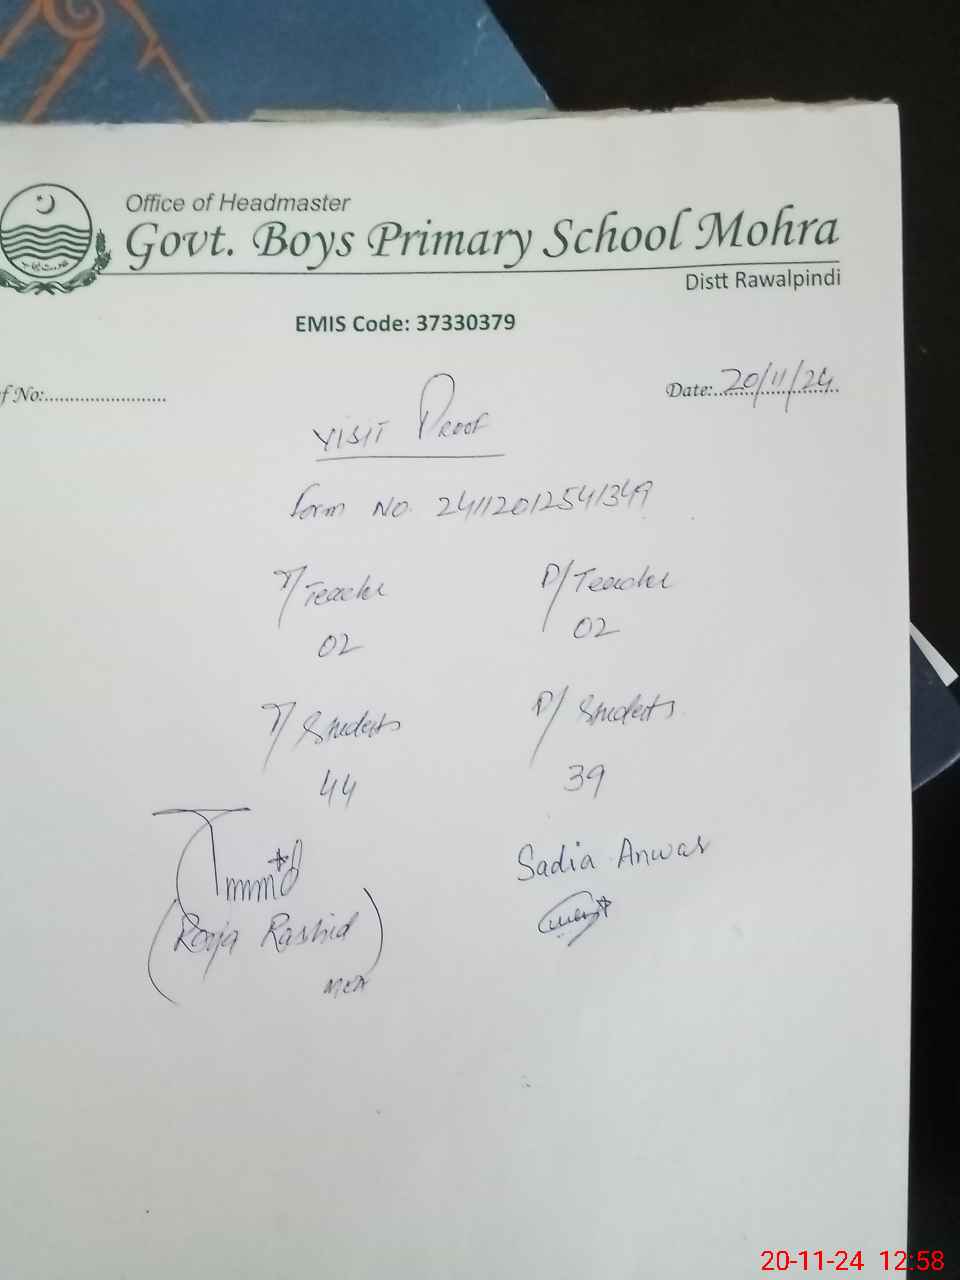 Office of Headmaster
Govt. Boys Primary School Mohra
Distt Rawalpindi
EMIS Code: 37330379
f No:......................... Date: 20/11/24
VISIT PROOF
Form No. 24112012541349
T/Teacher P/Teacher
02 02
T/Students P/Students
44 39
Sadia Anwar
(Raja Rashid)
MEA
20-11-24 12:58